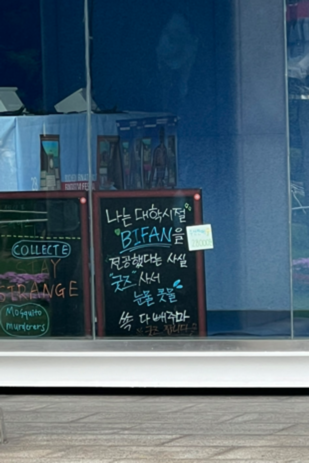 COLLECTE
MY
STRANGE
Mosquito
murderers
나는 대학시절
BIFAN을
전공했다는 사실
"굿즈" 사서
눈물 콧물
쏙 다 빼주마